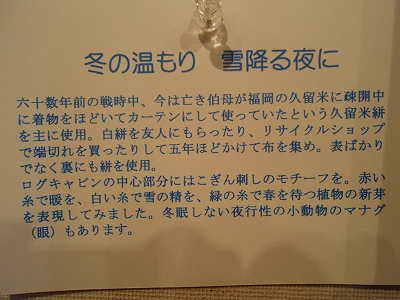 冬の温もり　雪降る夜に
六十数年前の戦時中、今は亡き伯母が福岡の久留米に疎開中
に着物をほどいてカーテンにして使っていたという久留米絣
を主に使用。白絣を友人にもらったり、リサイクルショップ
で端切れを買ったりして五年ほどかけて布を集め。表ばかり
でなく裏にも絣を使用。
ログキャビンの中心部分にはこぎん刺しのモチーフを。赤い
糸で暖を、白い糸で雪の精を、緑の糸で春を待つ植物の新芽
を表現してみました。冬眠しない夜行性の小動物のマナグ
（眼）もあります。